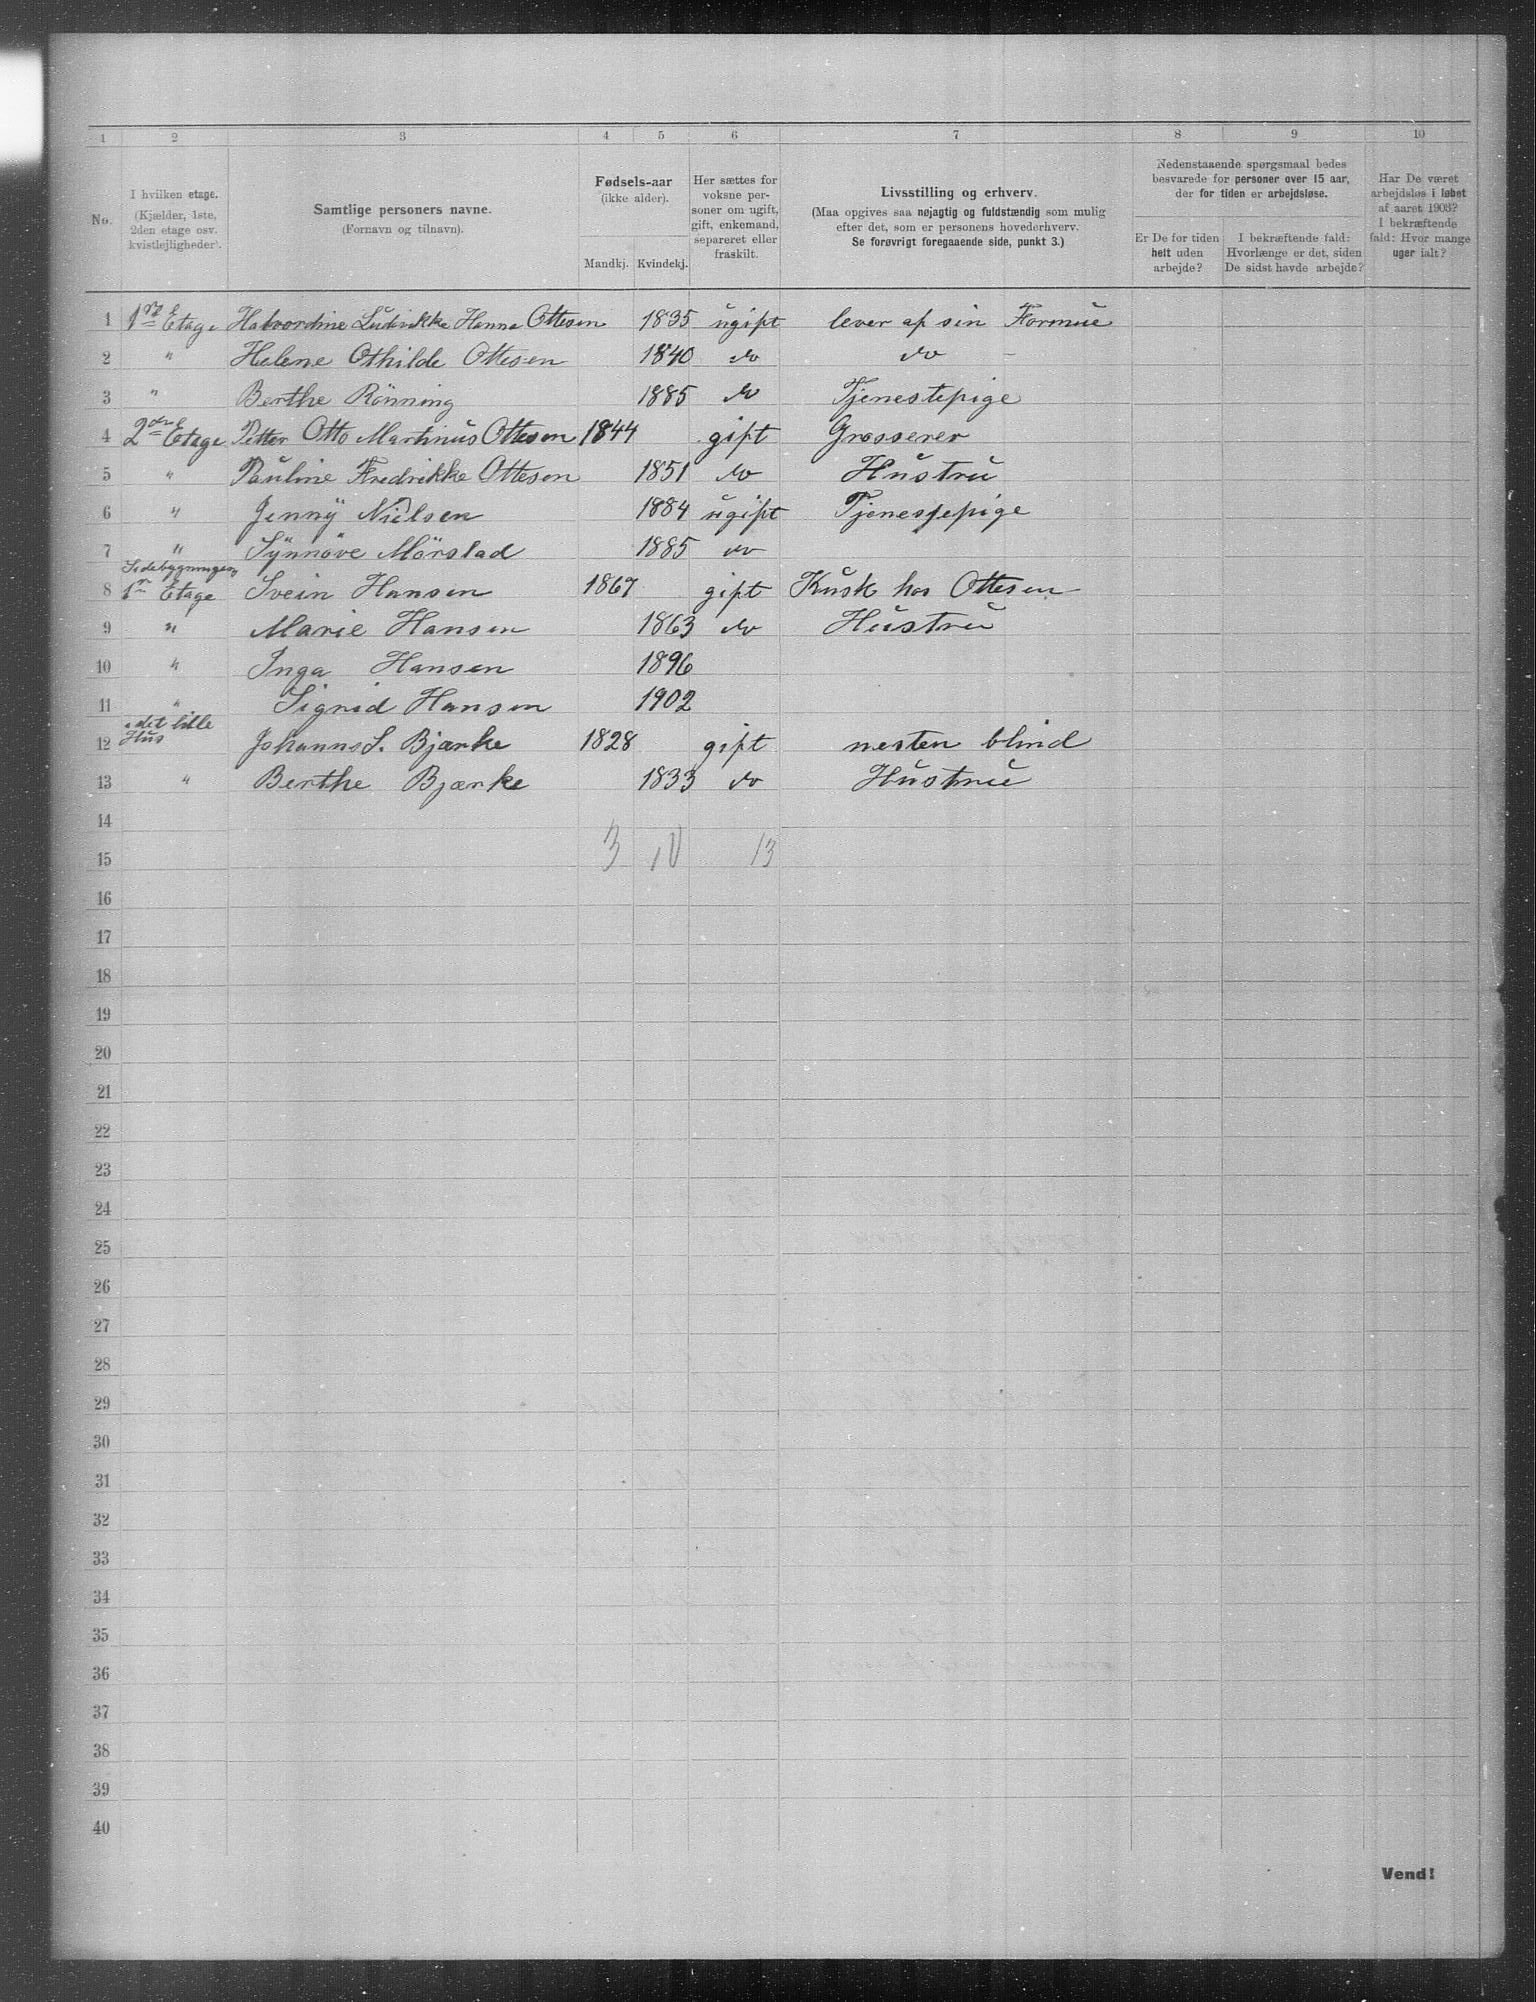 1 2 3 4 5 6 7 8 9 10
No.
I hvilken etage.
(Kjælder, 1ste,
2den etage osv.
kvistlejligheder).
Samtlige personers navne.
(Fornavn og tilnavn).
Fødsels-aar
(ikke alder).
Mandkj. Kvindekj.
Her sættes for
voksne per-
soner om ugift,
gift, enkemand,
separeret eller
fraskilt.
Livsstilling og erhverv.
(Maa opgives saa nøjagtig og fuldstændig som mulig
efter det, som er personens hovederhverv.
Se forøvrigt foregaaende side, punkt 3.)
Nedenstaaende spørgsmaal bedes
besvarede for personer over 15 aar,
der for tiden er arbejdsløse.
Er De for tiden
helt uden
arbejde?
I bekræftende fald:
Hvorlænge er det, siden
De sidst havde arbejde?
Har De været
arbejdsløs i løbet
af aaret 1903?
I bekræftende
fald: Hvor mange
uger ialt?
1 Etage Halvordine Ludvikke Hanna Ottesen 1835 ugift lever af sin Formue
2 " Helene Othilde Ottesen 1840 do do –
3 " Berthe Rönning 1885 do Tjenestepige
4 2den Etage Petter Otto Martinus Ottesen 1844 gift Grosserer
5 " Pauline Fredrikke Ottesen 1851 do Hustru
6 " Jenny Nielsen 1884 ugift Tjenestepige
7 " Synnöve Mörstad 1885 do
Sidebygningen
8 1n Etage Svein Hansen 1867 gift Kusk hos Ottesen
9 " Marie Hansen 1863 do Hustru
10 " Inga Hansen 1896
11 " Sigrid Hansen 1902
i det lille
12 Hus Johanns S. Bjærke 1828 gift nesten blind
13 " Berthe Bjærke 1833 do Hustru
14
15 3 10 13
16
17
18
19
20
21
22
23
24
25
26
27
28
29
30
31
32
33
34
35
36
37
38
39
40
Vend!